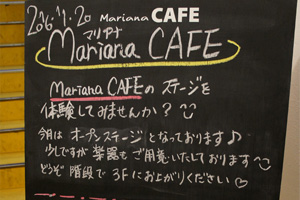 2016.11.20 Mariana CAFE
マリアナ
Mariana CAFE
Mariana CAFEの ステージを
体験してみませんか?
今月は オープンステージ となっております♪
少しですが 楽器も ご用意いたしております
どうぞ 階段で 3Fに おあがりください♡